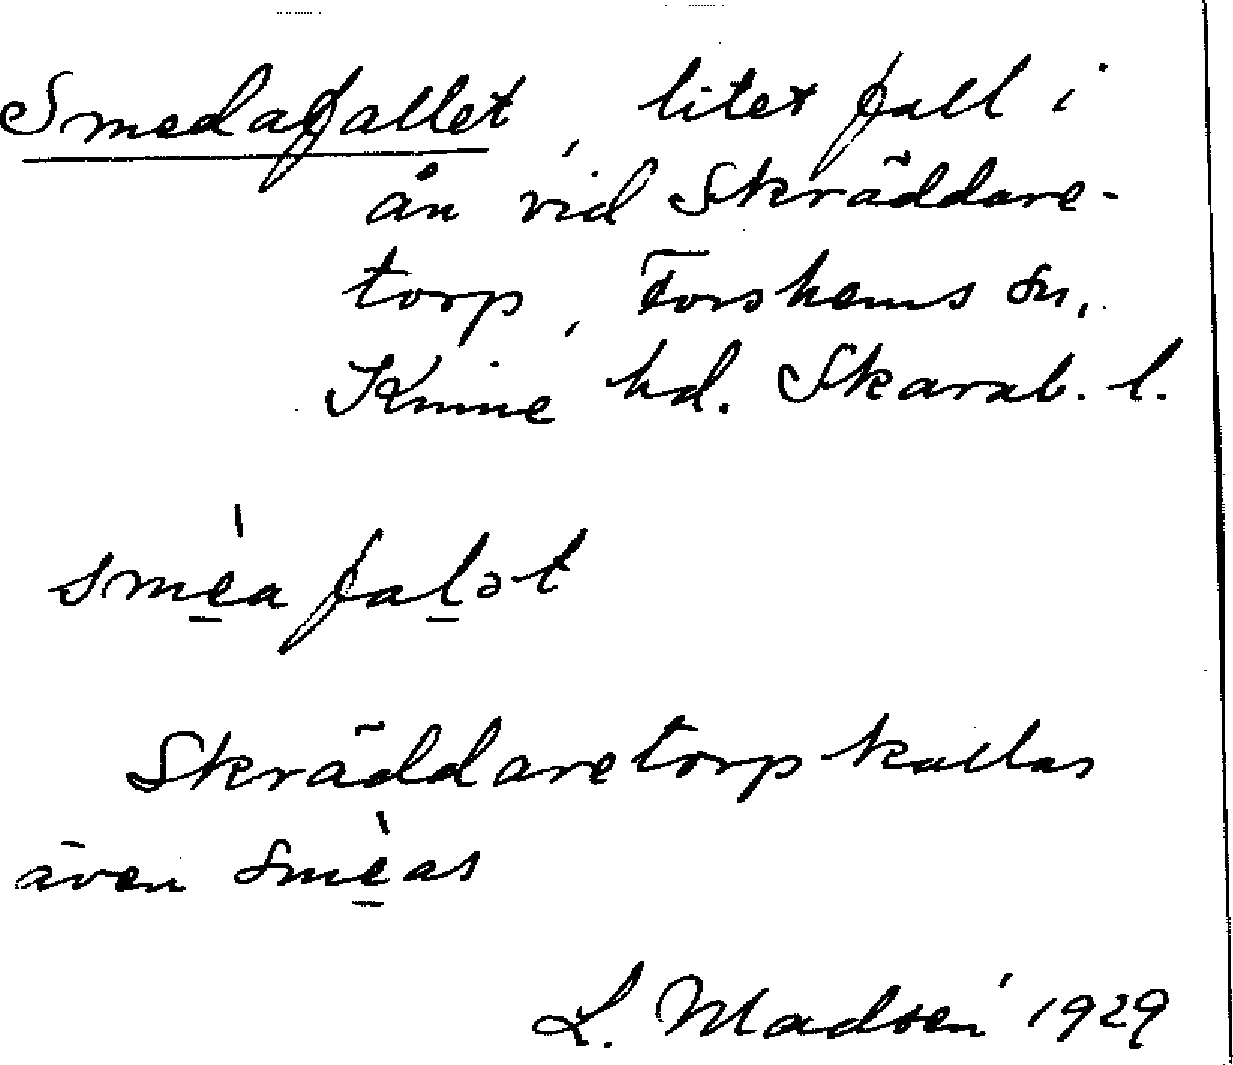 Smedafallet, litet fall i
ån vid Skräddare-
torp, Forshems sn,
Kinne hd. Skarab. l.
smèa falət
Skräddaretorp kallas
även Smèas
L. Madsén 1929